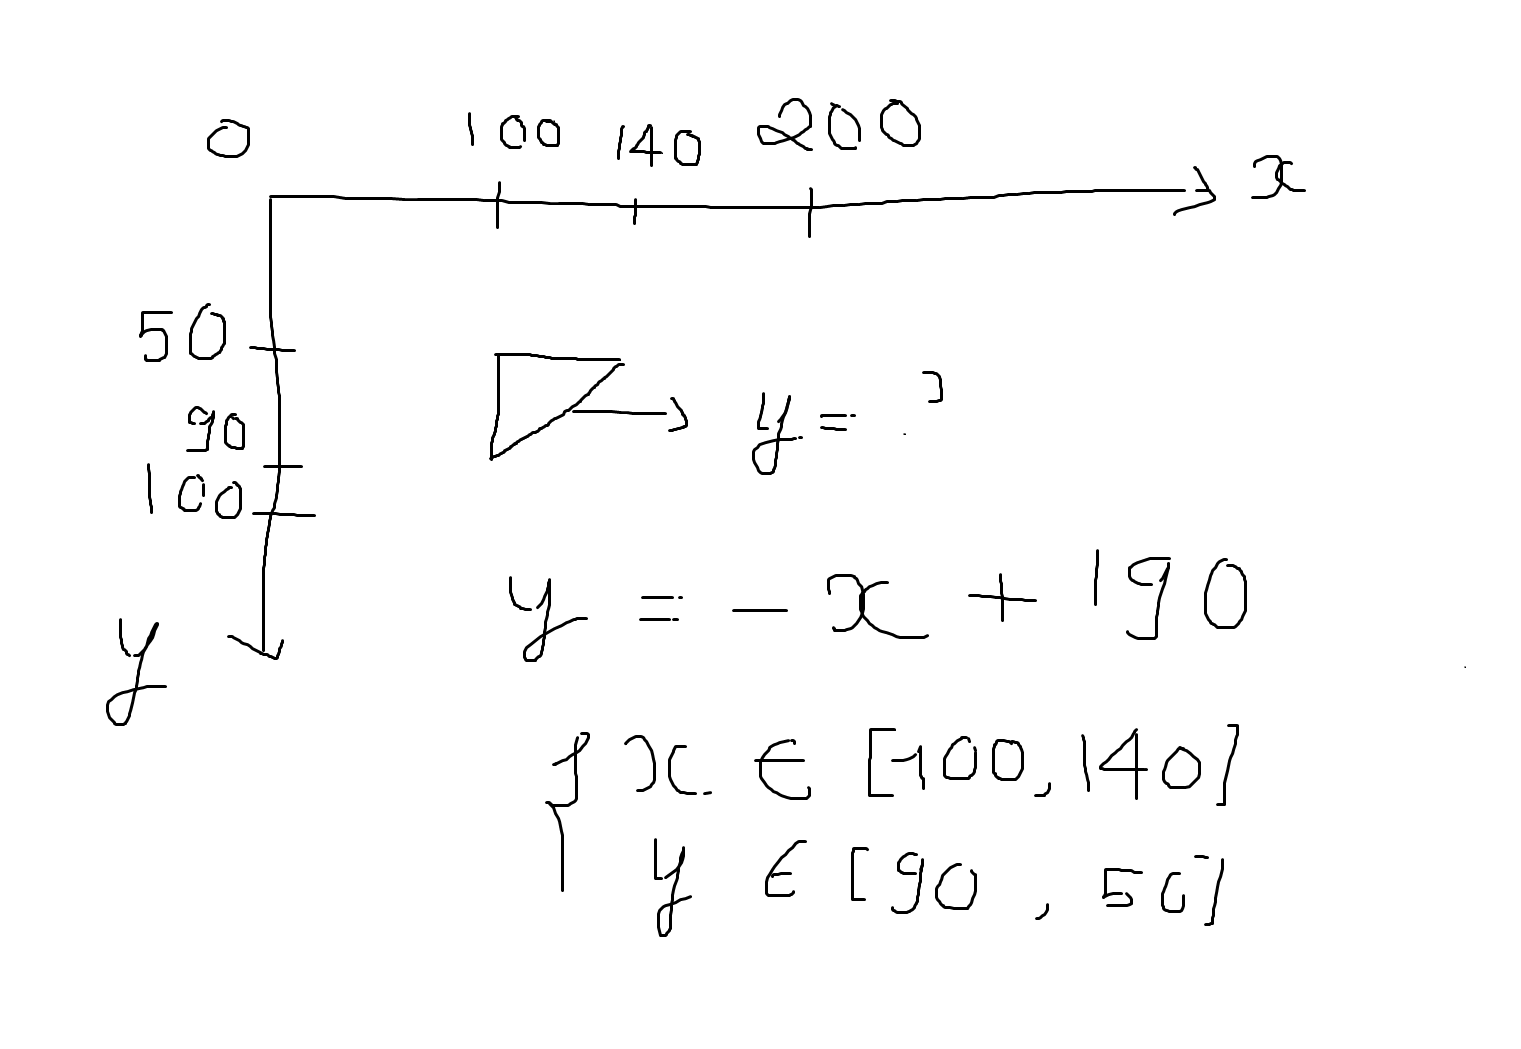 0 100 140 200 x
50
90
100
y
y = ?
y = - x + 190
{ x ∈ [100, 140]
y ∈ [90, 50]